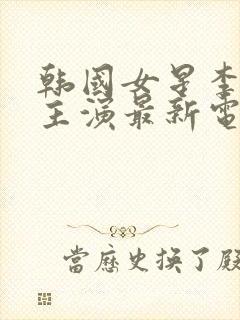 韩國女星李
主演最新電
當歷史换了殿